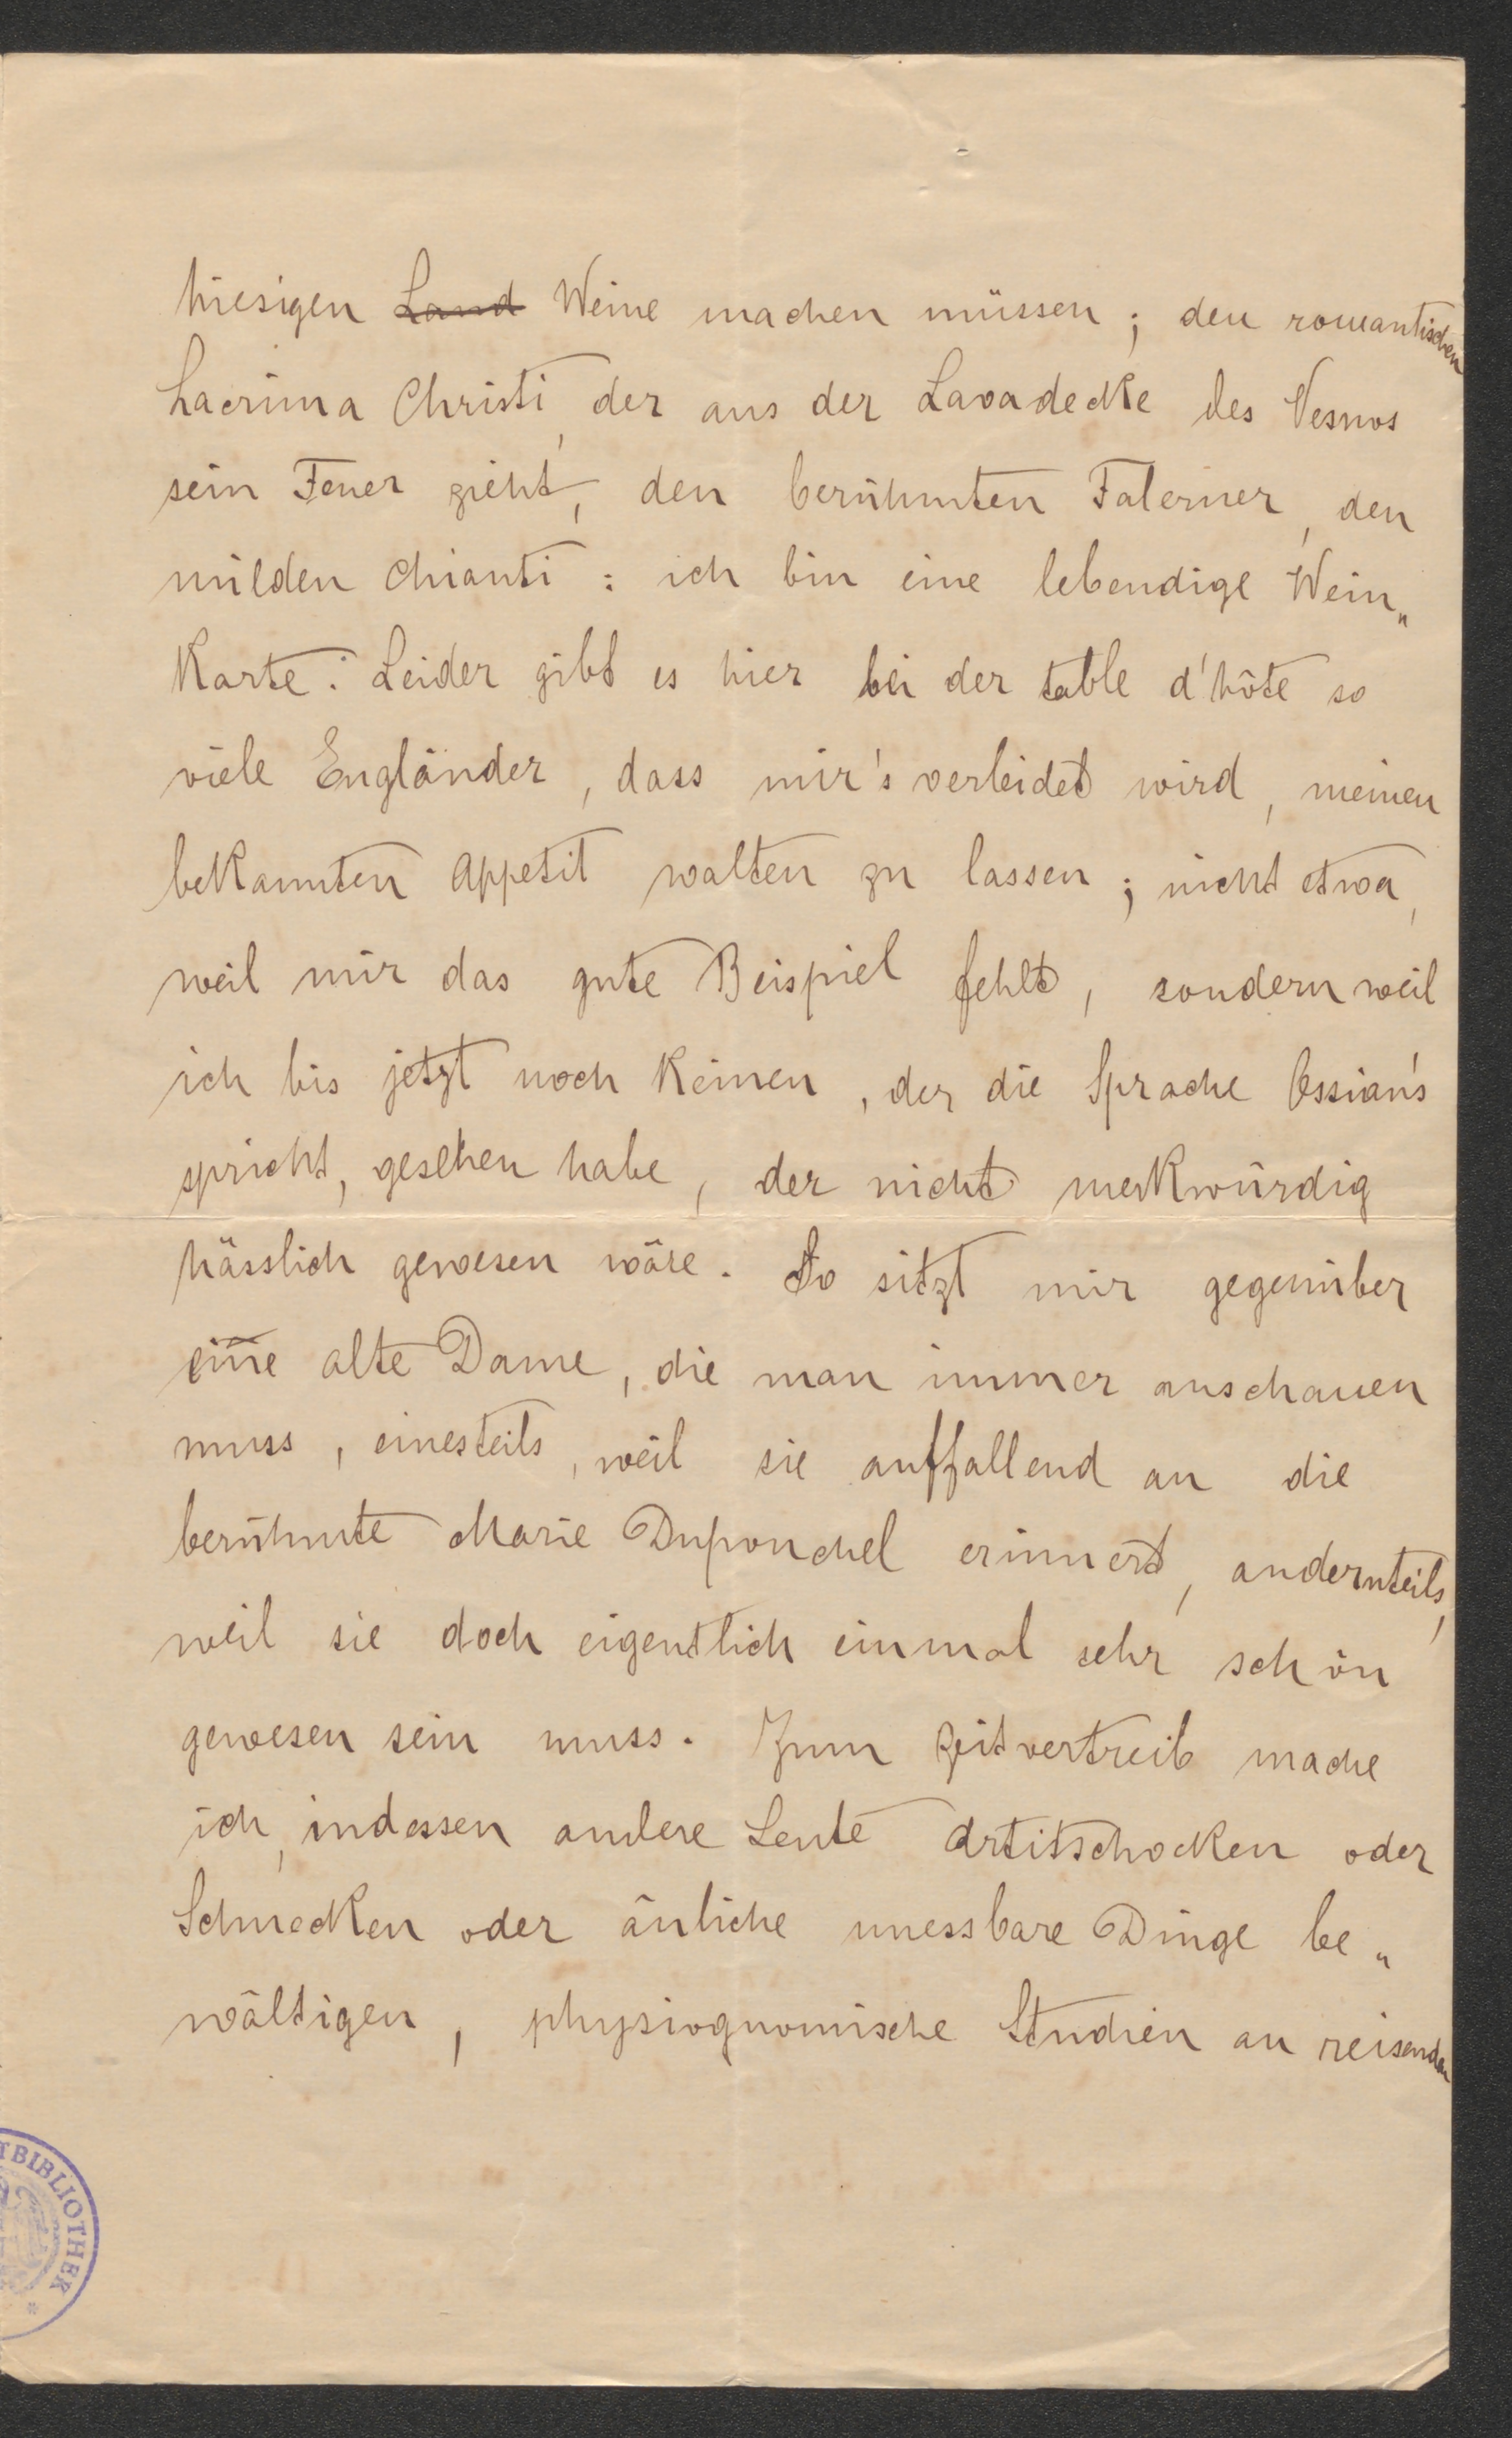 hiesigen Land Weine machen müssen; den romantischen
Lacrima Christi, der aus der Lavadecke des Vesuvs
sein Feuer zieht, den berühmten Falerner, den
milden Chianti: ich bin eine lebendige Wein„
Karte. Leider gibt es hier bei der table d'hôte so
viele Engländer, dass mir's verleidet wird, meinen
bekannten Appetit walten zu lassen; nicht etwa,
weil mir das gute Beispiel fehlt, sondern weil
ich bis jetzt noch Keinen, der die Sprache Ossian's
spricht, gesehen habe, der nicht merkwürdig
hässlich gewesen wäre. So sitzt mir gegenüber
eine alte Dame, die man immer anschauen
muss, einesteils, weil sie auffallend an die
berühmte Marie Duponchel erinnert, andernteils,
weil sie doch eigentlich einmal sehr schön
gewesen sein muss. Zum Zeitvertreib mache
ich, indessen andere Leute Artitschocken oder
Schnecken oder änliche unessbare Dinge be„
wältigen, physiognomische Studien an reisenden
TBIBLIOTHEK